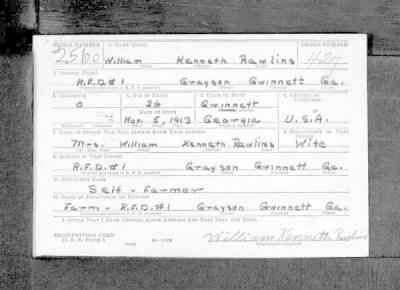 SERIAL NUMBER 1. NAME (Print) ORDER NUMBER
2560 William Kenneth Rawlins 424
(First) (Middle) (Last)
2. ADDRESS (Print)
R.F.D.#1 Grayson Gwinnett Ga.
3. TELEPHONE 4. AGE IN YEARS 5. PLACE OF BIRTH 6. COUNTRY OF CITIZENSHIP
O 26 Gwinnett
DATE OF BIRTH
Nov. 5, 1913 Georgia U.S.A.
7. NAME OF PERSON WHO WILL ALWAYS KNOW YOUR ADDRESS 8. RELATIONSHIP OF THAT PERSON
Mrs. William Kenneth Rawlins Wife
9. ADDRESS OF THAT PERSON
R.F.D.#1 Grayson Gwinnett Ga.
10. EMPLOYER'S NAME
Self - Farmer
11. PLACE OF EMPLOYMENT OR BUSINESS
Farm - R.F.D.#1 Grayson Gwinnett Ga.
I AFFIRM THAT I HAVE VERIFIED ABOVE ANSWERS AND THAT THEY ARE TRUE.
REGISTRATION CARD
D. S. S. FORM 1 William Kenneth Rawlins